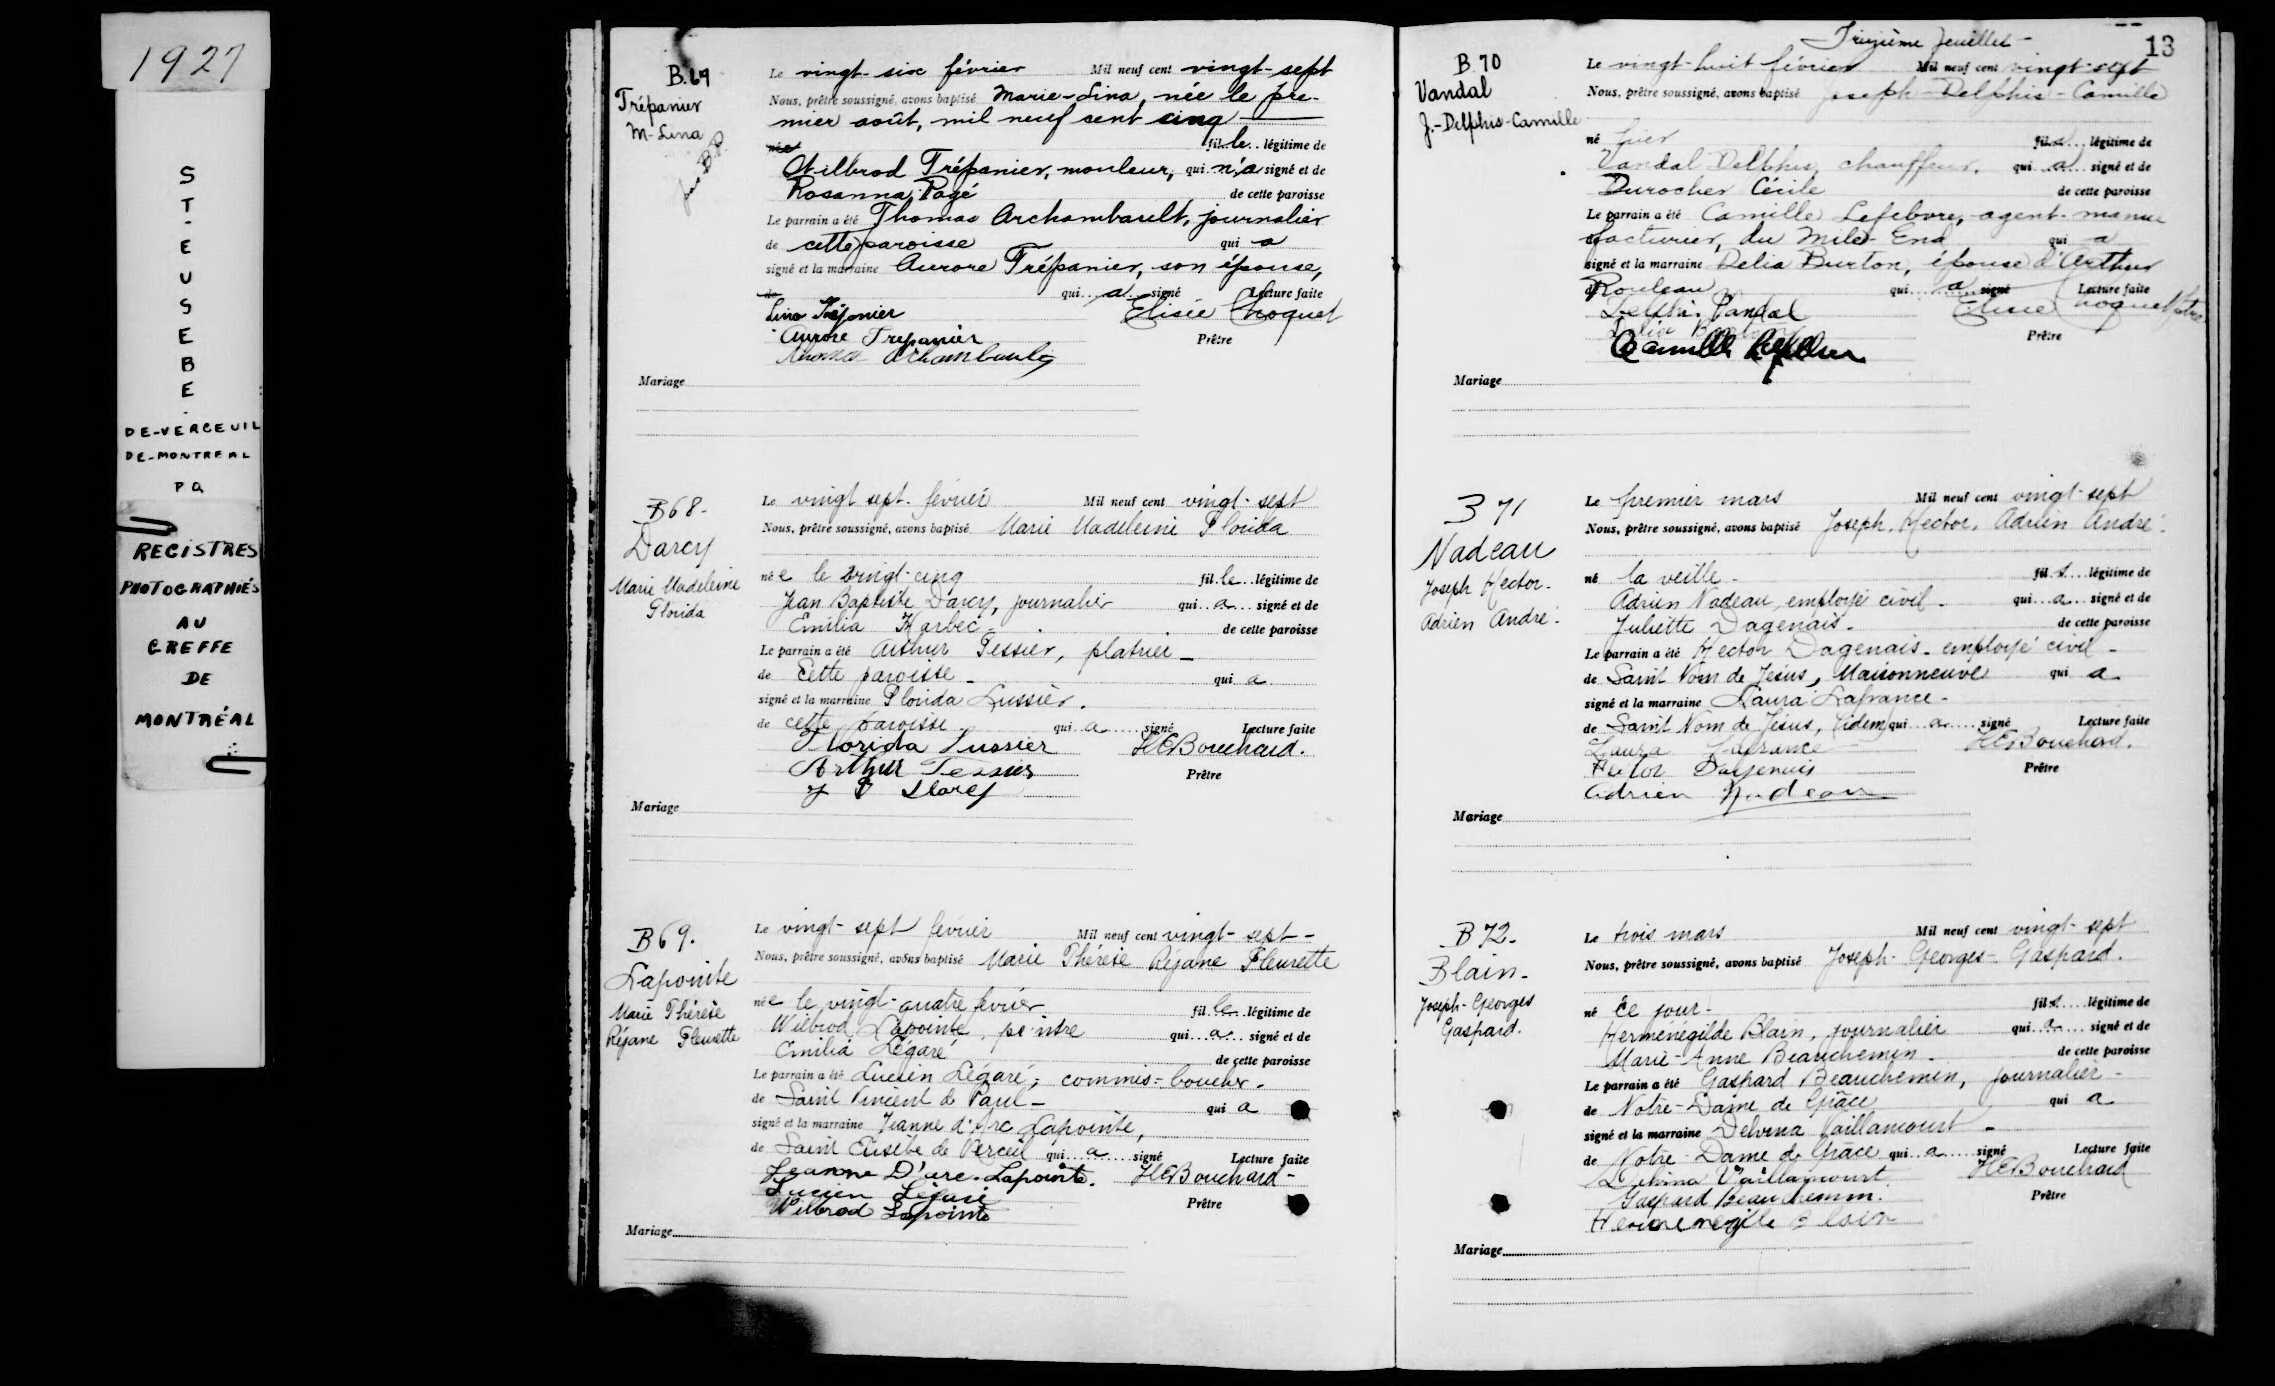 1927
ST-EUSEBE
DE-VERCEUIL
DE-MONTREAL
PQ
REGISTRES
PHOTOGRAPHIÉS
AU
GREFFE
DE
MONTRÉAL
B.67
Trépanier
M-Lina
Le vingt-six février Mil neuf cent vingt-sept
Nous, prêtre soussigné, avons baptisé Marie-Lina, née le pre-
mier août, mil neuf cent cinq
née fille légitime de
Wilbrod Trépanier, mouleur, qui n'a signé et de
Rosanna Pagé de cette paroisse
Le parrain a été Thomas Archambault, journalier
de cette paroisse qui a
signé et la marraine Aurore Trépanier, son épouse,
de qui a signé Lecture faite
Lina Trépanier Elisée Choquet
Aurore Trepanier Prêtre
Thomas Archambault
Mariage
B68-
Darcy
Marie Madeleine
Florida
Le vingt sept février Mil neuf cent vingt-sept
Nous, prêtre soussigné, avons baptisé Marie Madeleine Florida
née le vingt-cinq fille légitime de
Jean Baptiste Darcy, journalier qui a signé et de
Emilia Harbec de cette paroisse
Le parrain a été Arthur Tessier, platrier -
de cette paroisse - qui a
signé et la marraine Florida Lussier.
de cette paroisse qui a signé Lecture faite
Florida Lussier HEBouchard.
Arthur Tessier Prêtre
J B Darcy
Mariage
B69.
Lapointe
Marie Thérèse
Réjane Fleurette
Le vingt-sept février Mil neuf cent vingt-sept-
Nous, prêtre soussigné, avons baptisé Marie Thérèse Réjane Fleurette
née le vingt-quatre février fille légitime de
Wilbrod Lapointe, peintre qui a signé et de
Emilia Légaré de cette paroisse
Le parrain a été Lucien Légaré, commis-boucher.
de Saint Vincent de Paul - qui a
signé et la marraine Jeanne d'Arc Lapointe,
de Saint Eusèbe de Verceil qui a signé Lecture faite
Jeanne D'arc Lapointe. HEBouchard-
Lucien Légaré Prêtre
Wilbrod Lapointe
Mariage
Treizième feuillet - 13
B 70
Vandal
J.-Delphis-Camille
Le vingt-huit février Mil neuf cent vingt-sept
Nous, prêtre soussigné, avons baptisé Joseph-Delphis-Camille
né hier fils légitime de
Vandal Delphis, chauffeur, qui a signé et de
Durocher Cécile de cette paroisse
Le parrain a été Camille Lefebvre, agent-manu
facturier, du Mile-End qui a
signé et la marraine Delia Burton, épouse d'Arthur
de Rouleau qui a signé Lecture faite
Delphis Vandal Elisée Choquet ptre
Prêtre
Camille Lefebvre
Mariage
B 71
Nadeau
Joseph Hector-
Adrien André.
Le premier mars Mil neuf cent vingt-sept
Nous, prêtre soussigné, avons baptisé Joseph, Hector, Adrien André.
né la veille - fils légitime de
Adrien Nadeau, employé civil - qui a signé et de
Juliette Dagenais - de cette paroisse
Le parrain a été Hector Dagenais - employé civil -
de Saint Nom de Jésus, Maisonneuve qui a
signé et la marraine Laura Lafrance -
de Saint Nom de Jésus, idem qui a signé Lecture faite
Laura Lafrance HEBouchard.
Hector Dagenais Prêtre
Adrien Nadeau
Mariage
B 72-
Blain-
Joseph-Georges
Gaspard.
Le trois mars Mil neuf cent vingt-sept
Nous, prêtre soussigné, avons baptisé Joseph-Georges-Gaspard.
né ce jour - fils légitime de
Herménégilde Blain, journalier qui a signé et de
Marie-Anne Beauchemin - de cette paroisse
Le parrain a été Gaspard Beauchemin, journalier -
de Notre-Dame de Grâce qui a
signé et la marraine Delvina Vaillancourt -
de Notre-Dame de Grâce qui a signé Lecture faite
Delvina Vaillancourt HEBouchard
Gaspard Beauchemin. Prêtre
Hermenegilde Blain
Mariage